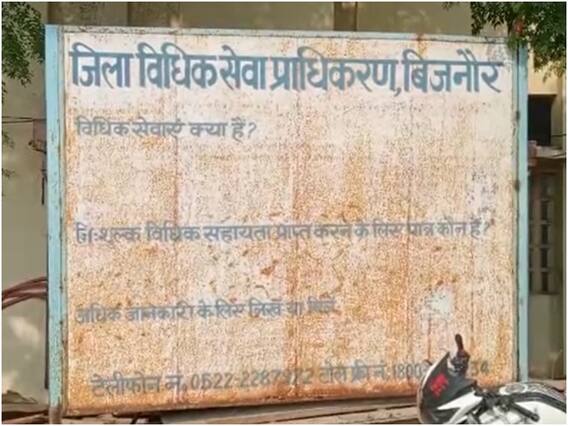 जिला विधिक सेवा प्राधिकरण, बिजनौर
विधिक सेवाएं क्या है?
निःशुल्क विधिक सहायता प्राप्त करने के लिए पात्र कौन है?
अधिक जानकारी के लिए लिखें या मिलें
टेलीफोन नं. 0522-2287972 टोल फ्री नं. 1800